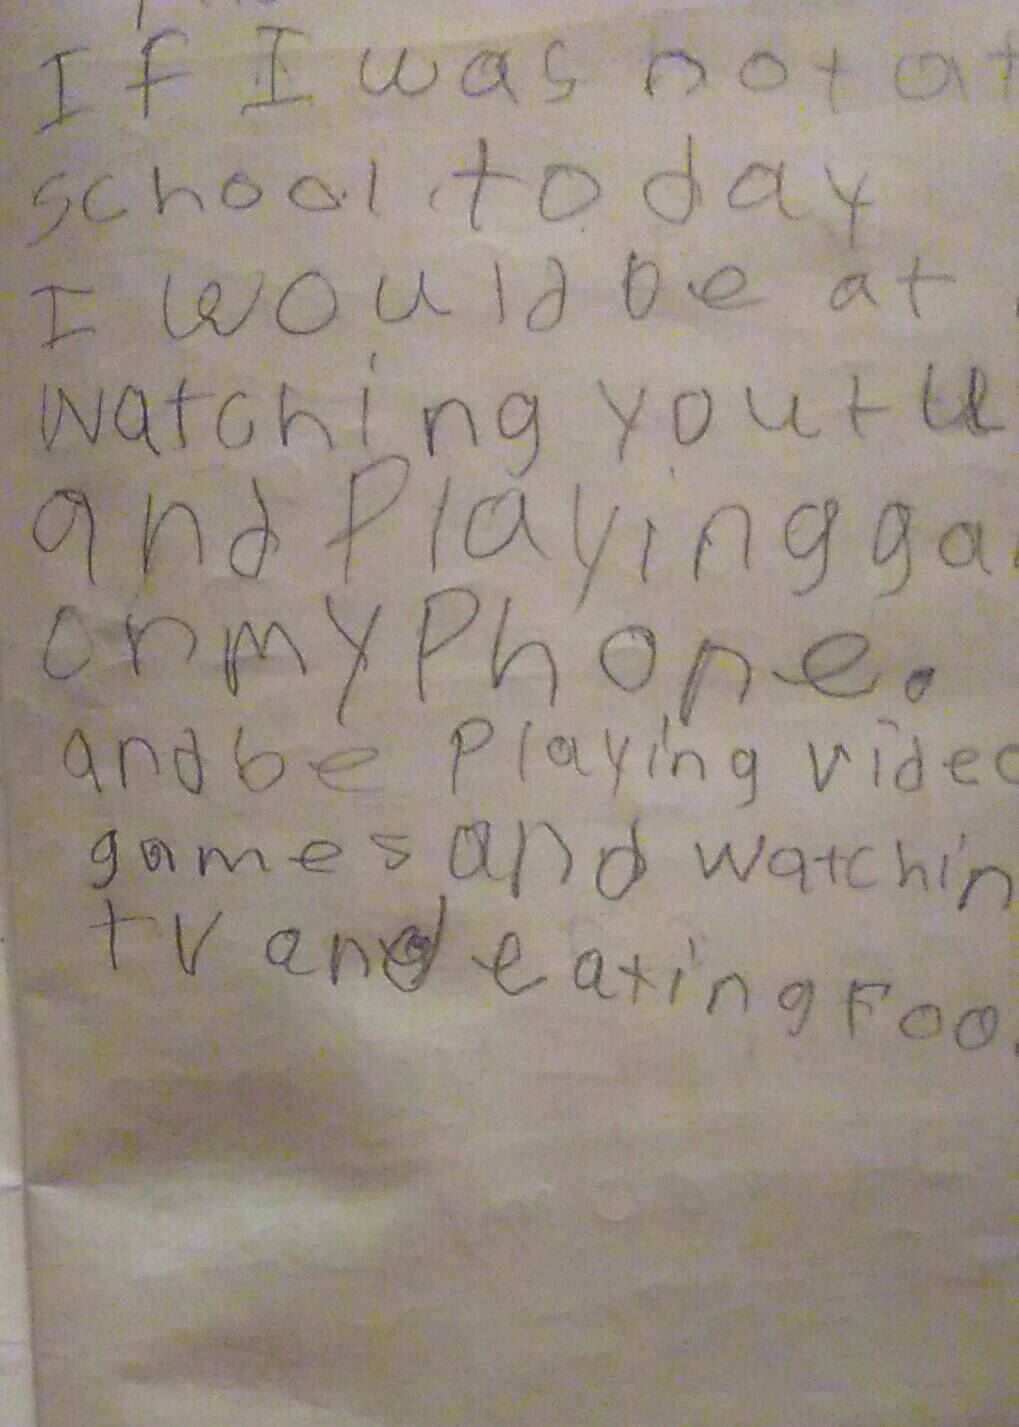 If I was not at
school today
I would be at
watching youtu
and Playing ga
on my Phone.
and be Playing video
games and watchin
tv and eating Foo